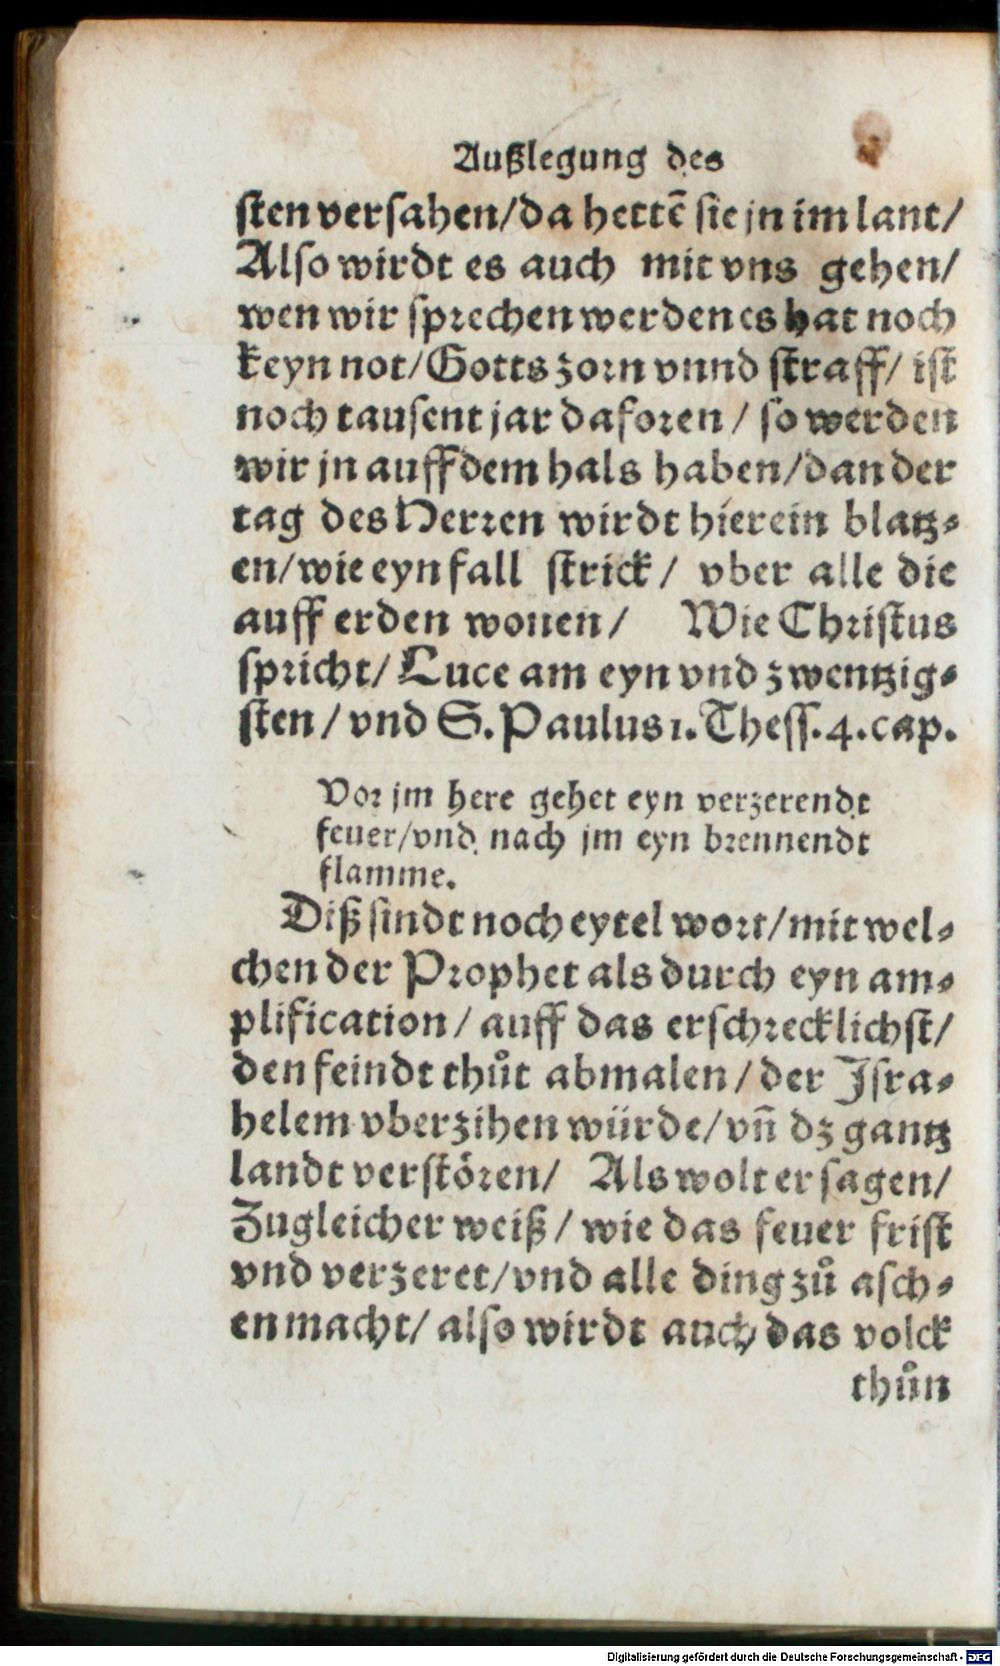 Außlegung des
ſten verſahen/da hettē ſie jn im lant/
Alſo wirdt es auch mit vns gehen/
wen wir ſprechen werden es hat noch
keyn not/Gotts zorn vnnd ſtraff/ iſt
noch tauſent jar daforen / ſo werden
wir jn auff dem hals haben/dan der
tag des Herren wirdt hierein blatz⸗
en/wie eyn fall ſtrick / vber alle die
auff erden wonen / Wie Chriſtus
ſpricht/ Luce am eyn vnd zwentzig⸗
ſten / vnd S. Paulus 1. Theſſ. 4. cap.
Vor jm here gehet eyn verzerendt
feuer/vnd nach jm eyn brennendt
flamme.
Diß ſindt noch eytel wort/mit wel⸗
chen der Prophet als durch eyn am⸗
plification / auff das erſchrecklichſt/
den feindt thůt abmalen / der Iſra⸗
helem vberzihen würde/vn̄ dz gantz
landt verſtören/ Als wolt er ſagen/
Zugleicher weiß / wie das feuer friſt
vnd verzeret/vnd alle ding zů aſch⸗
en macht/ alſo wirdt auch das volck
thůn
Digitalisierung gefördert durch die Deutsche Forschungsgemeinschaft - DFG